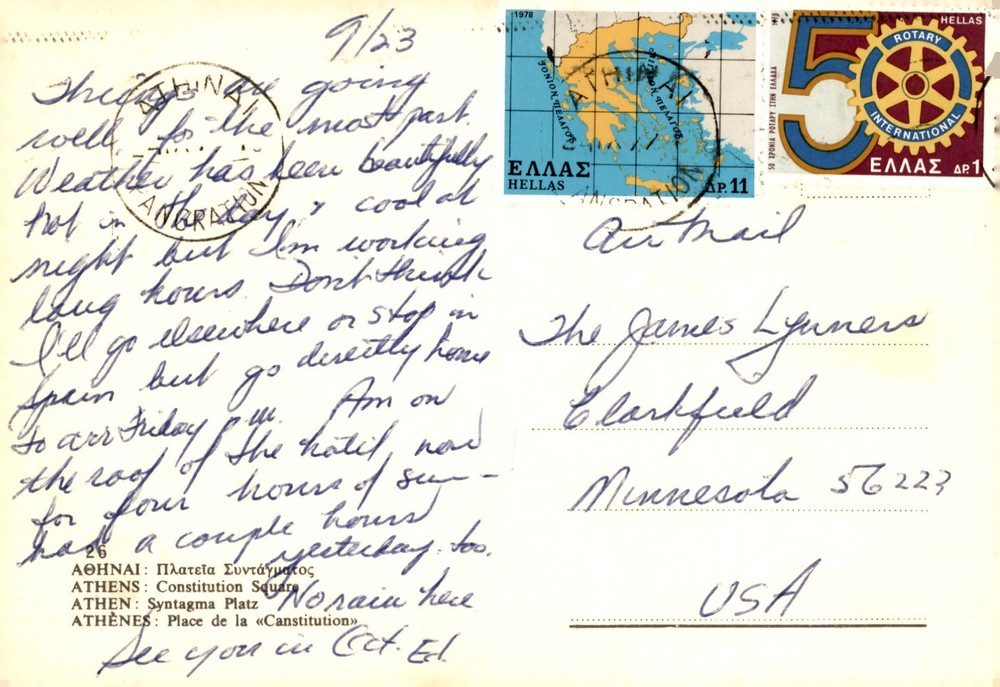 9/23
Things are going
well for the most part.
Weather has been beautifully
hot in the day & cool at
night but I'm working
long hours. Don't think
I'll go elsewhere or stop in
Spain but go directly home
to arr Friday
Am on
the roof of the hotel now
for four hours of sun—
had a couple hours
yesterday too.
No rain here
See you in Oct. Ed.
26
ΑΘΗΝΑΙ: Πλατεῖα Συντάγματος
ATHENS: Constitution Square
ATHEN: Syntagma Platz
ATHÈNES: Place de la «Canstitution»
1978
ΙΟΝΙΟΝ ΠΕΛΑΓΟΣ
ΕΛΛΑΣ
HELLAS
ΔΡ. 11
HELLAS
50 ΧΡΟΝΙΑ ΡΟΤΑΡΥ ΣΤΗΝ ΕΛΛΑΔΑ
5
ROTARY
INTERNATIONAL
ΕΛΛΑΣ ΔΡ. 1
ATHINAI
ATHINAI
Air Mail
The James Lynners
Clarkfield
Minnesota 56223
USA